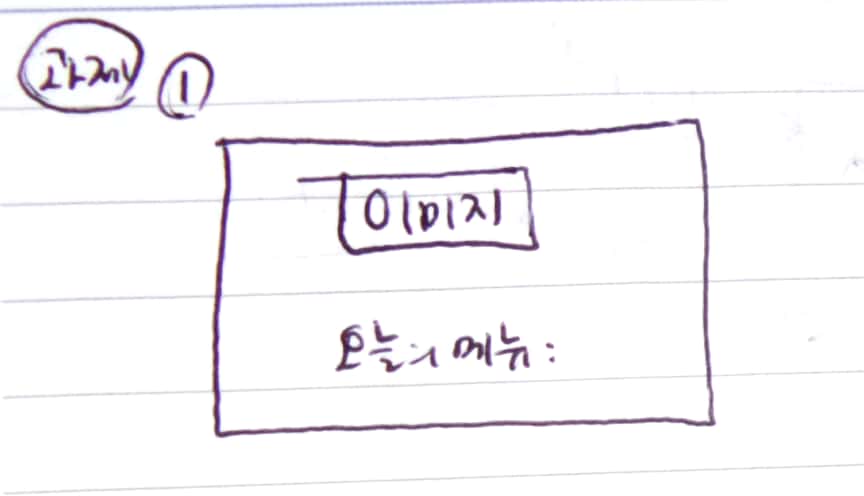 과제 ①
이미지
오늘의 메뉴 :